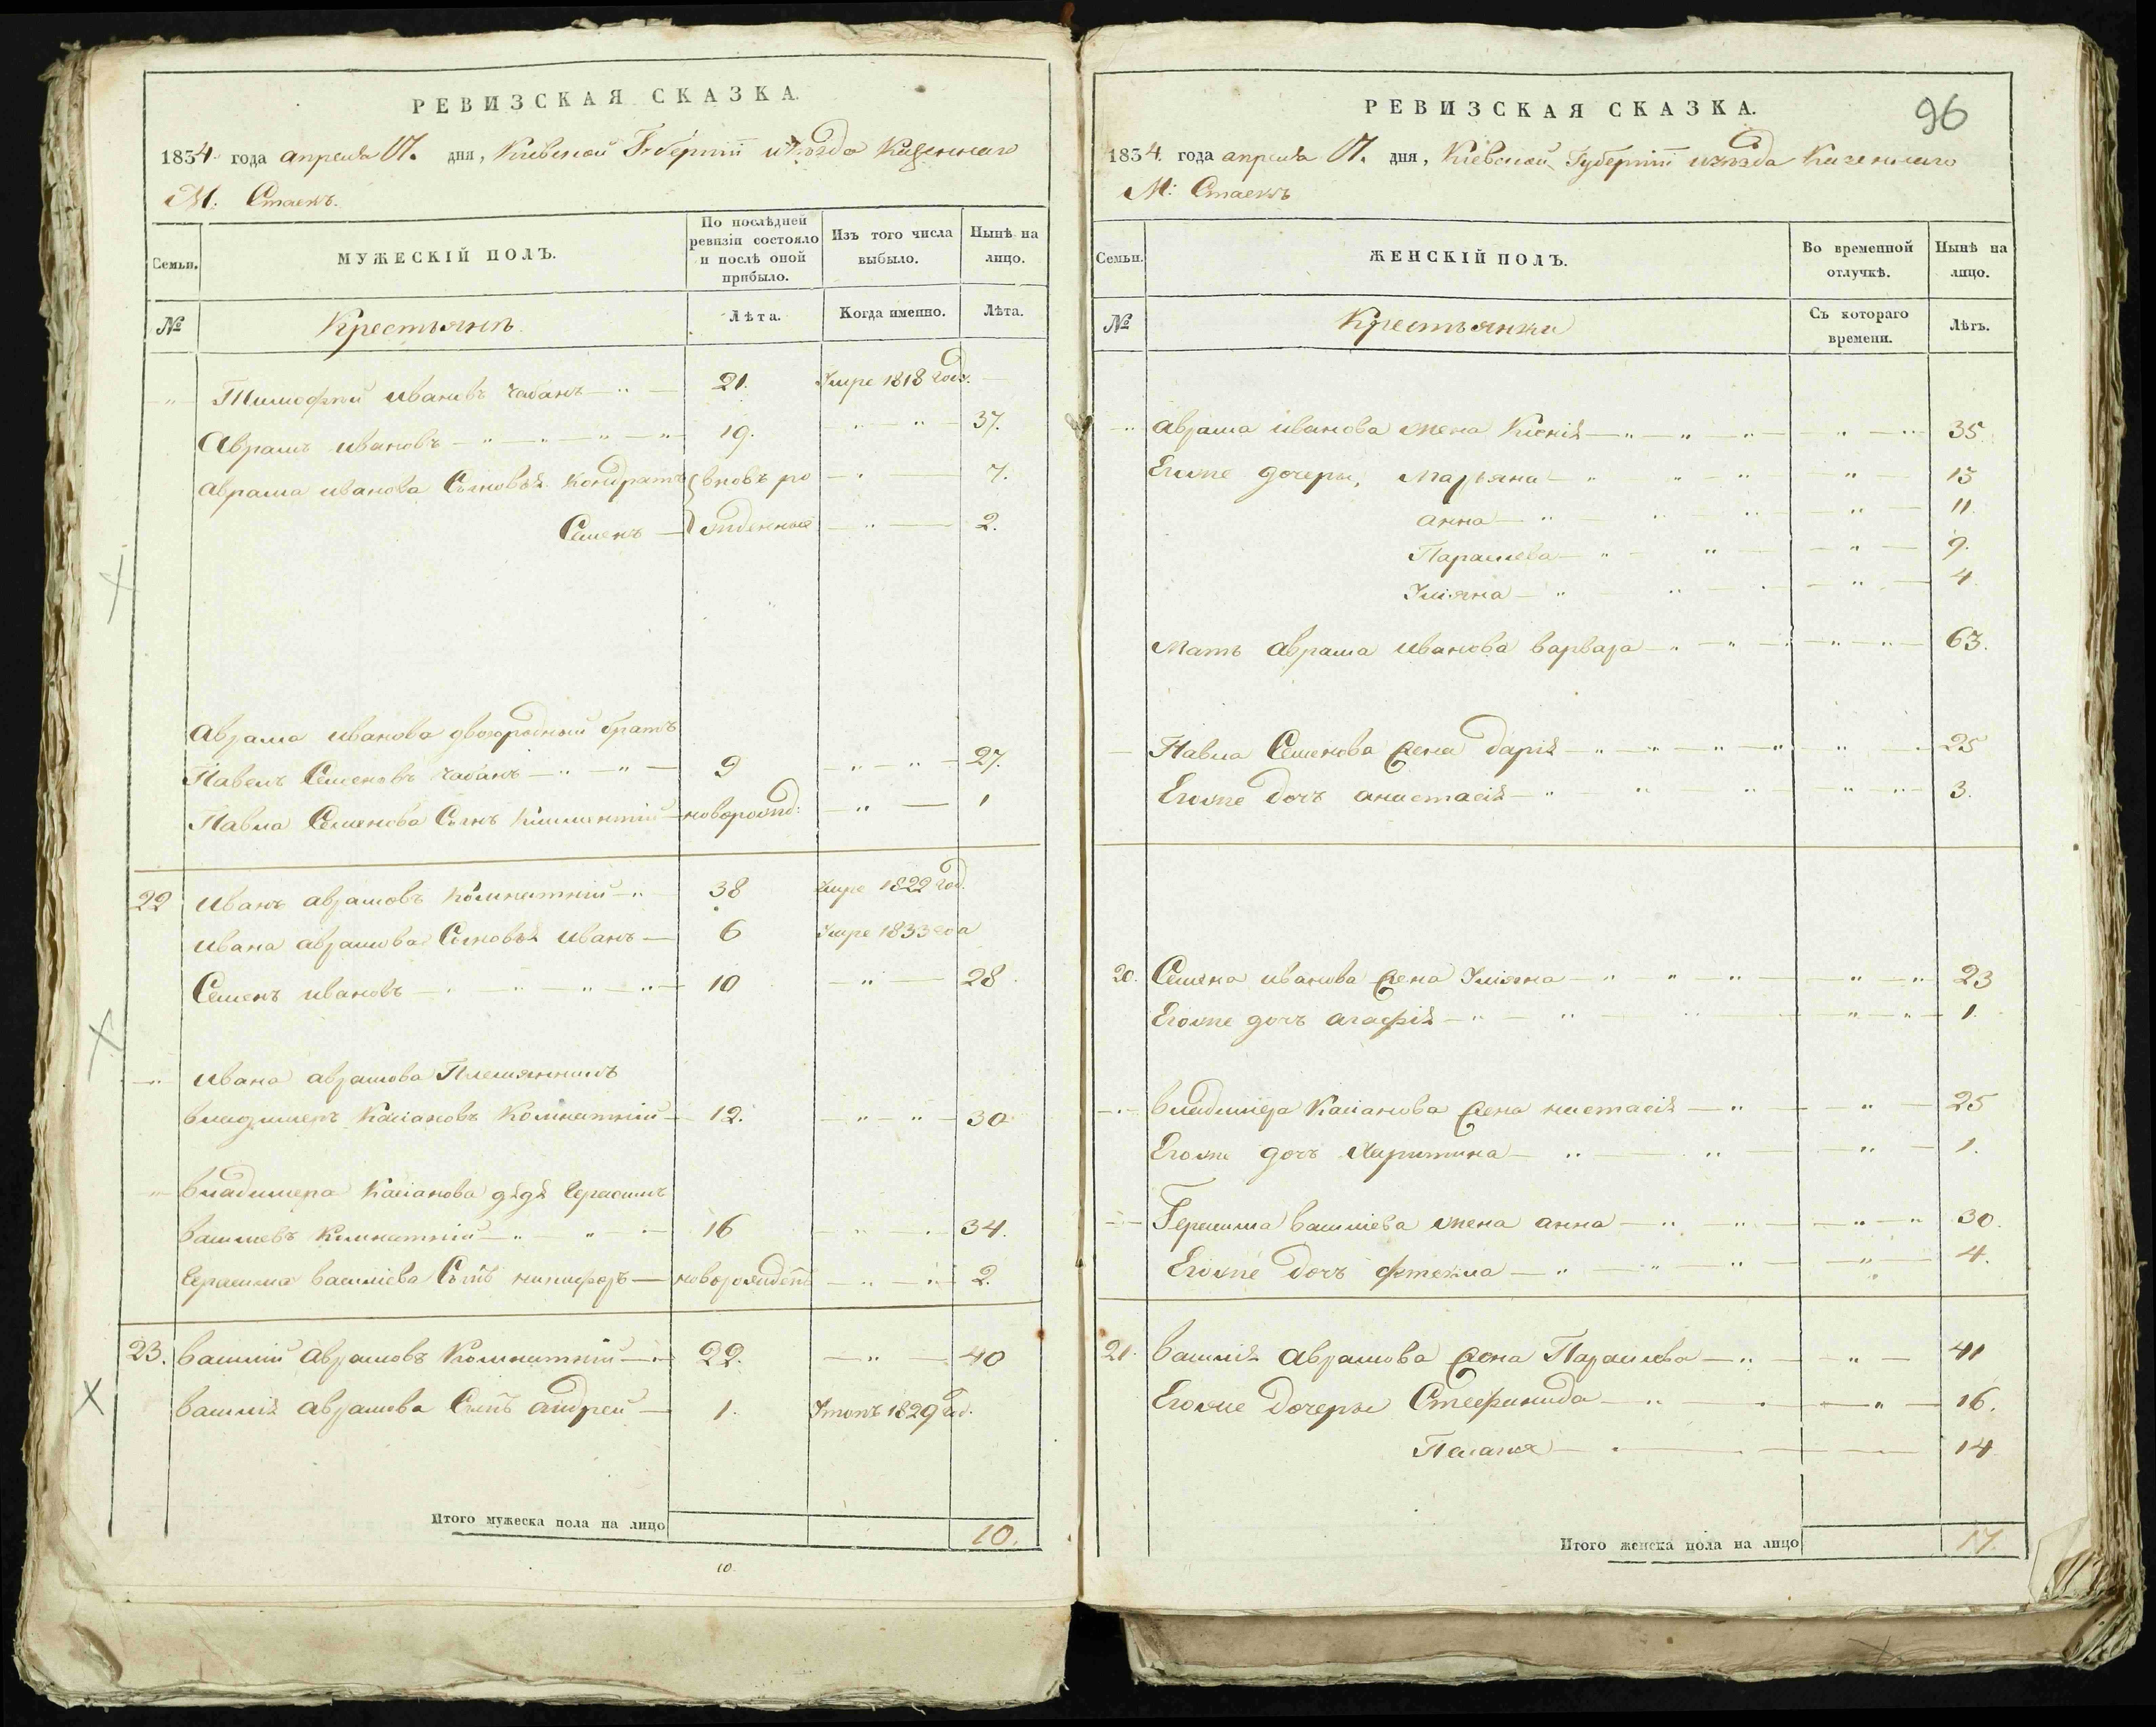 РЕВИЗСКАЯ СКАЗКА.
1834 года апреля 17. дня, Киевской Губернiи и уѣзда Казеннаго
М. Стаекъ.
Семьи.
МУЖЕСКIЙ ПОЛЪ.
По послѣдней ревизiи состояло и послѣ оной прибыло.
Изъ того числа выбыло.
Нынѣ на лицо.
№
Крестьяне.
Лѣта.
Когда именно.
Лѣта.
Тимофей ивановъ чабанъ 21. Умре 1818 год.
Аврамъ ивановъ 19. 37.
Аврама иванова Сыновья Кондратъ вновь ро 7.
Семенъ жденные 2.
Аврама иванова двоюродный братъ
Павелъ Семеновъ чабанъ 9 27.
Павла Семенова Сынъ Климентiй новорожд: 1
22 иванъ аврамовъ Комнатнiй 38 Умре 1822 год.
ивана аврамова Сыновья иванъ 6 Умре 1833 года
Семенъ ивановъ 10 28.
ивана аврамова Племянникъ
владимеръ Касiановъ Комнатнiй 12. 30
владимера Касiанова дядя Герасимъ
васильевъ Комнатнiй 16 34.
Герасима василiева Сынъ никифоръ новорожден 2.
23. василiй аврамовъ Комнатнiй 22. 40
василiя аврамова Сынъ андрей 1. Утопъ 1829 год.
Итого мужеска пола на лицо 10.
10.
96
РЕВИЗСКАЯ СКАЗКА.
1834 года апреля 17. дня, Кiевской Губернiи и уѣзда Казеннаго
М: Стаекъ
Семьи.
ЖЕНСКIЙ ПОЛЪ.
Во временной отлучкѣ.
Нынѣ на лицо.
№
Крестьянки
Съ котораго времени.
Лѣтъ.
аврама иванова жена Ксенiя 35.
Егоже дочери, Марьяна 15
анна 11.
Параскева 9.
Улiяна 4.
Мать аврама иванова варвара 63.
Павла Семенова жена дарiя 25
Егоже дочь анастасiя 3.
20. Семена иванова жена Улiяна 23
Егоже дочь агафiя 1.
владимера Касiанова жена настасiя 25
Егоже дочь Харитина 1.
Герасима василiева жена анна 30.
Егоже дочь фтекла 4.
21. василiя аврамова жена Параскева 41
Егоже дочеры Стефанида 16.
Пелагея 14
Итого женска пола на лицо 17.